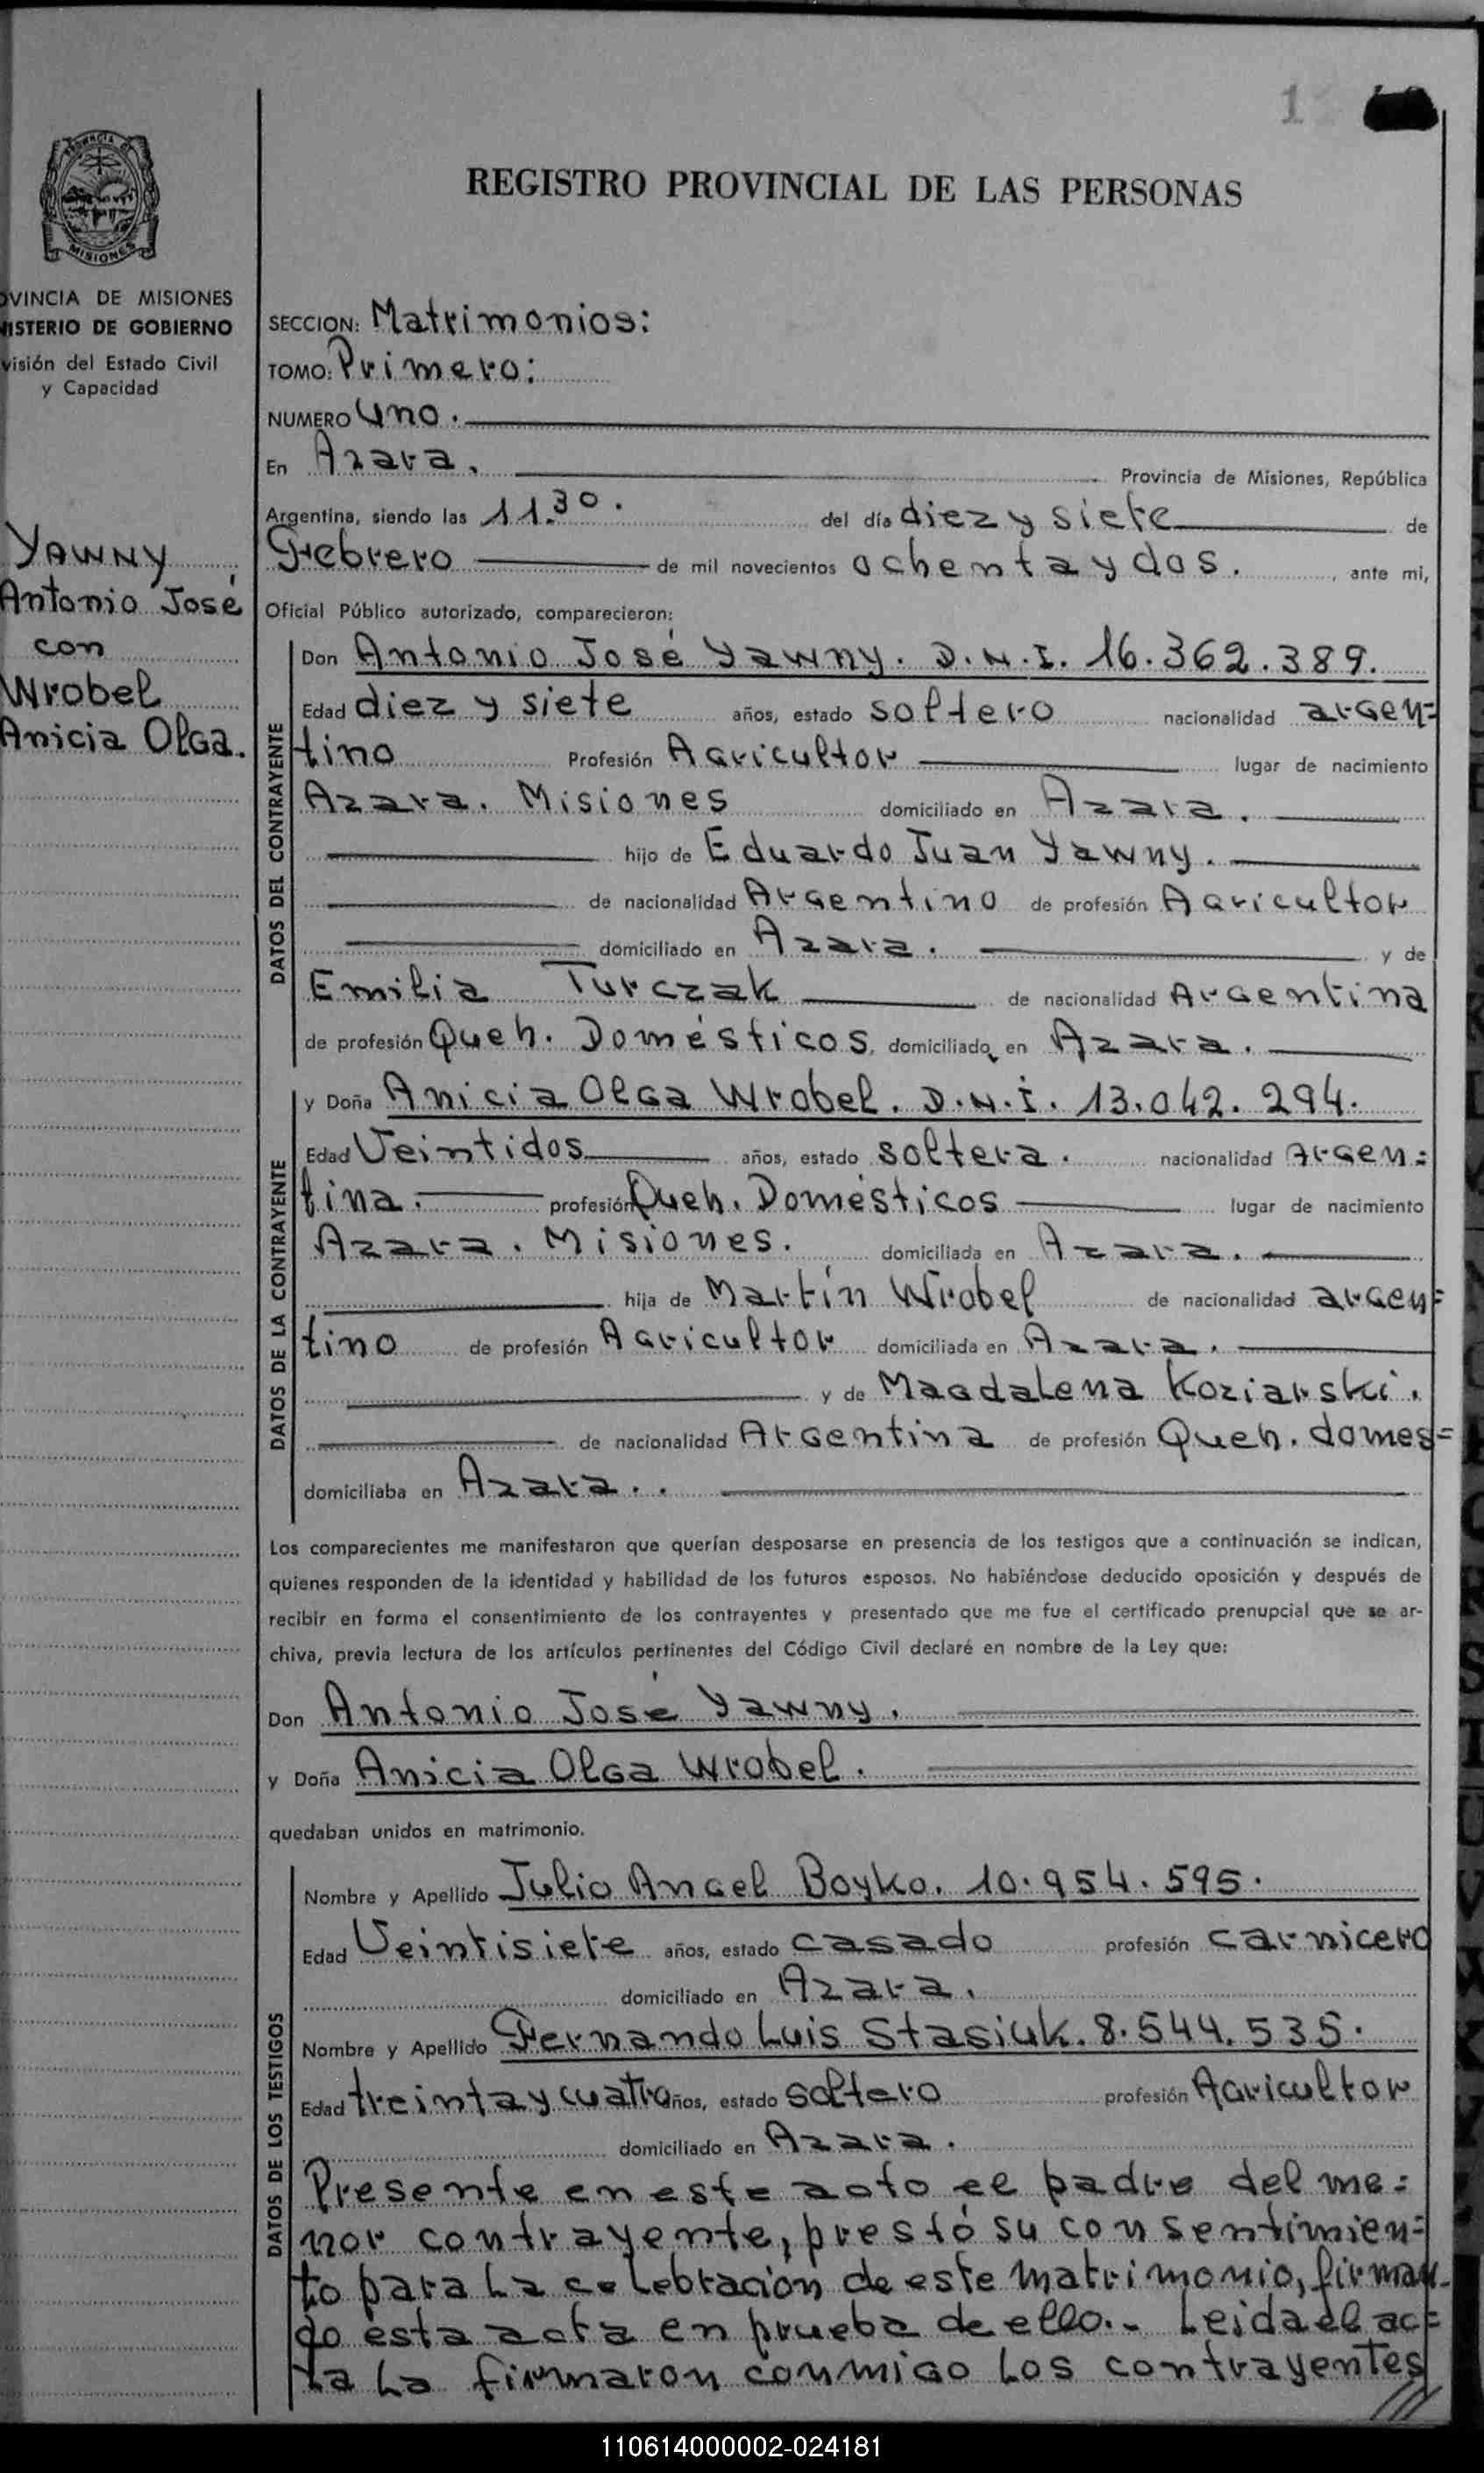 1
REGISTRO PROVINCIAL DE LAS PERSONAS
PROVINCIA DE
MISIONES
OVINCIA DE MISIONES
NISTERIO DE GOBIERNO
visión del Estado Civil
y Capacidad
YAWNY
Antonio José
con
Wrobel
Anicia Olga.
SECCION: Matrimonios:
TOMO: Primero:
NUMERO Uno.
En Azara. Provincia de Misiones, República
Argentina, siendo las 11.30. del día diez y siete de
Febrero de mil novecientos ochenta y dos. , ante mi,
Oficial Público autorizado, comparecieron:
DATOS DEL CONTRAYENTE
Don Antonio José Yawny. D.N.I. 16.362.389.
Edad diez y siete años, estado soltero nacionalidad argen=
tino Profesión Agricultor lugar de nacimiento
Azara. Misiones domiciliado en Azara.
hijo de Eduardo Juan Yawny.
de nacionalidad Argentino de profesión Agricultor
domiciliado en Azara. y de
Emilia Turczak de nacionalidad Argentina
de profesión Queh. Domésticos, domiciliado en Azara.
DATOS DE LA CONTRAYENTE
y Doña Anicia Olga Wrobel. D.N.I. 13.042.294.
Edad Veintidos años, estado soltera. nacionalidad Argen=
tina. profesión Queh. Domésticos lugar de nacimiento
Azara. Misiones. domiciliada en Azara.
hija de Martín Wrobel de nacionalidad argen=
tino de profesión Agricultor domiciliada en Azara.
y de Magdalena Koziarski.
de nacionalidad Argentina de profesión Queh. domes=
domiciliaba en Azara..
Los comparecientes me manifestaron que querían desposarse en presencia de los testigos que a continuación se indican,
quienes responden de la identidad y habilidad de los futuros esposos. No habiéndose deducido oposición y después de
recibir en forma el consentimiento de los contrayentes y presentado que me fue el certificado prenupcial que se ar-
chiva, previa lectura de los artículos pertinentes del Código Civil declaré en nombre de la Ley que:
Don Antonio José Yawny.
y Doña Anicia Olga Wrobel.
quedaban unidos en matrimonio.
DATOS DE LOS TESTIGOS
Nombre y Apellido Julio Angel Boyko. 10.954.595.
Edad Veintisiete años, estado casado profesión carnicero
domiciliado en Azara.
Nombre y Apellido Fernando Luis Stasiuk. 8.544.535.
Edad treinta y cuatro años, estado soltero profesión Agricultor
domiciliado en Azara.
Presente en este acto el padre del me=
nor contrayente, prestó su consentimien=
to para la celebración de este matrimonio, firman-
do esta acta en prueba de ello.- Leida el ac=
ta la firmaron conmigo los contrayentes
110614000002-024181